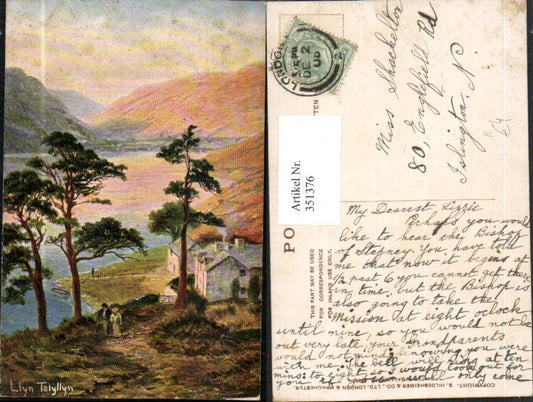 Llyn Talyllyn
LONDON
5.15 PM
DE 2
08
Miss Shackelton
80, Englefield Rd
Islington. N.
Artikel Nr.
351376
PO
THIS PART MAY BE USED
FOR CORRESPONDENCE
FOR INLAND USE ONLY.
COPYRIGHT. S. HILDESHEIMER & CO., LTD. LONDON & MANCHESTER.
My Dearest Lizzie
Perhaps you would
like to hear the Bishop
of Stepney. You have told
me that now it begins at
½ past 6 you cannot get there
in time. but the Bishop is
also going to take the
Mission at eight oclock
until nine so you would not be
out very late, your Grandparents
would not mind knowing you were
with me. The bell will ring at ten
mins: to eight so I would look out for
you if you could only come